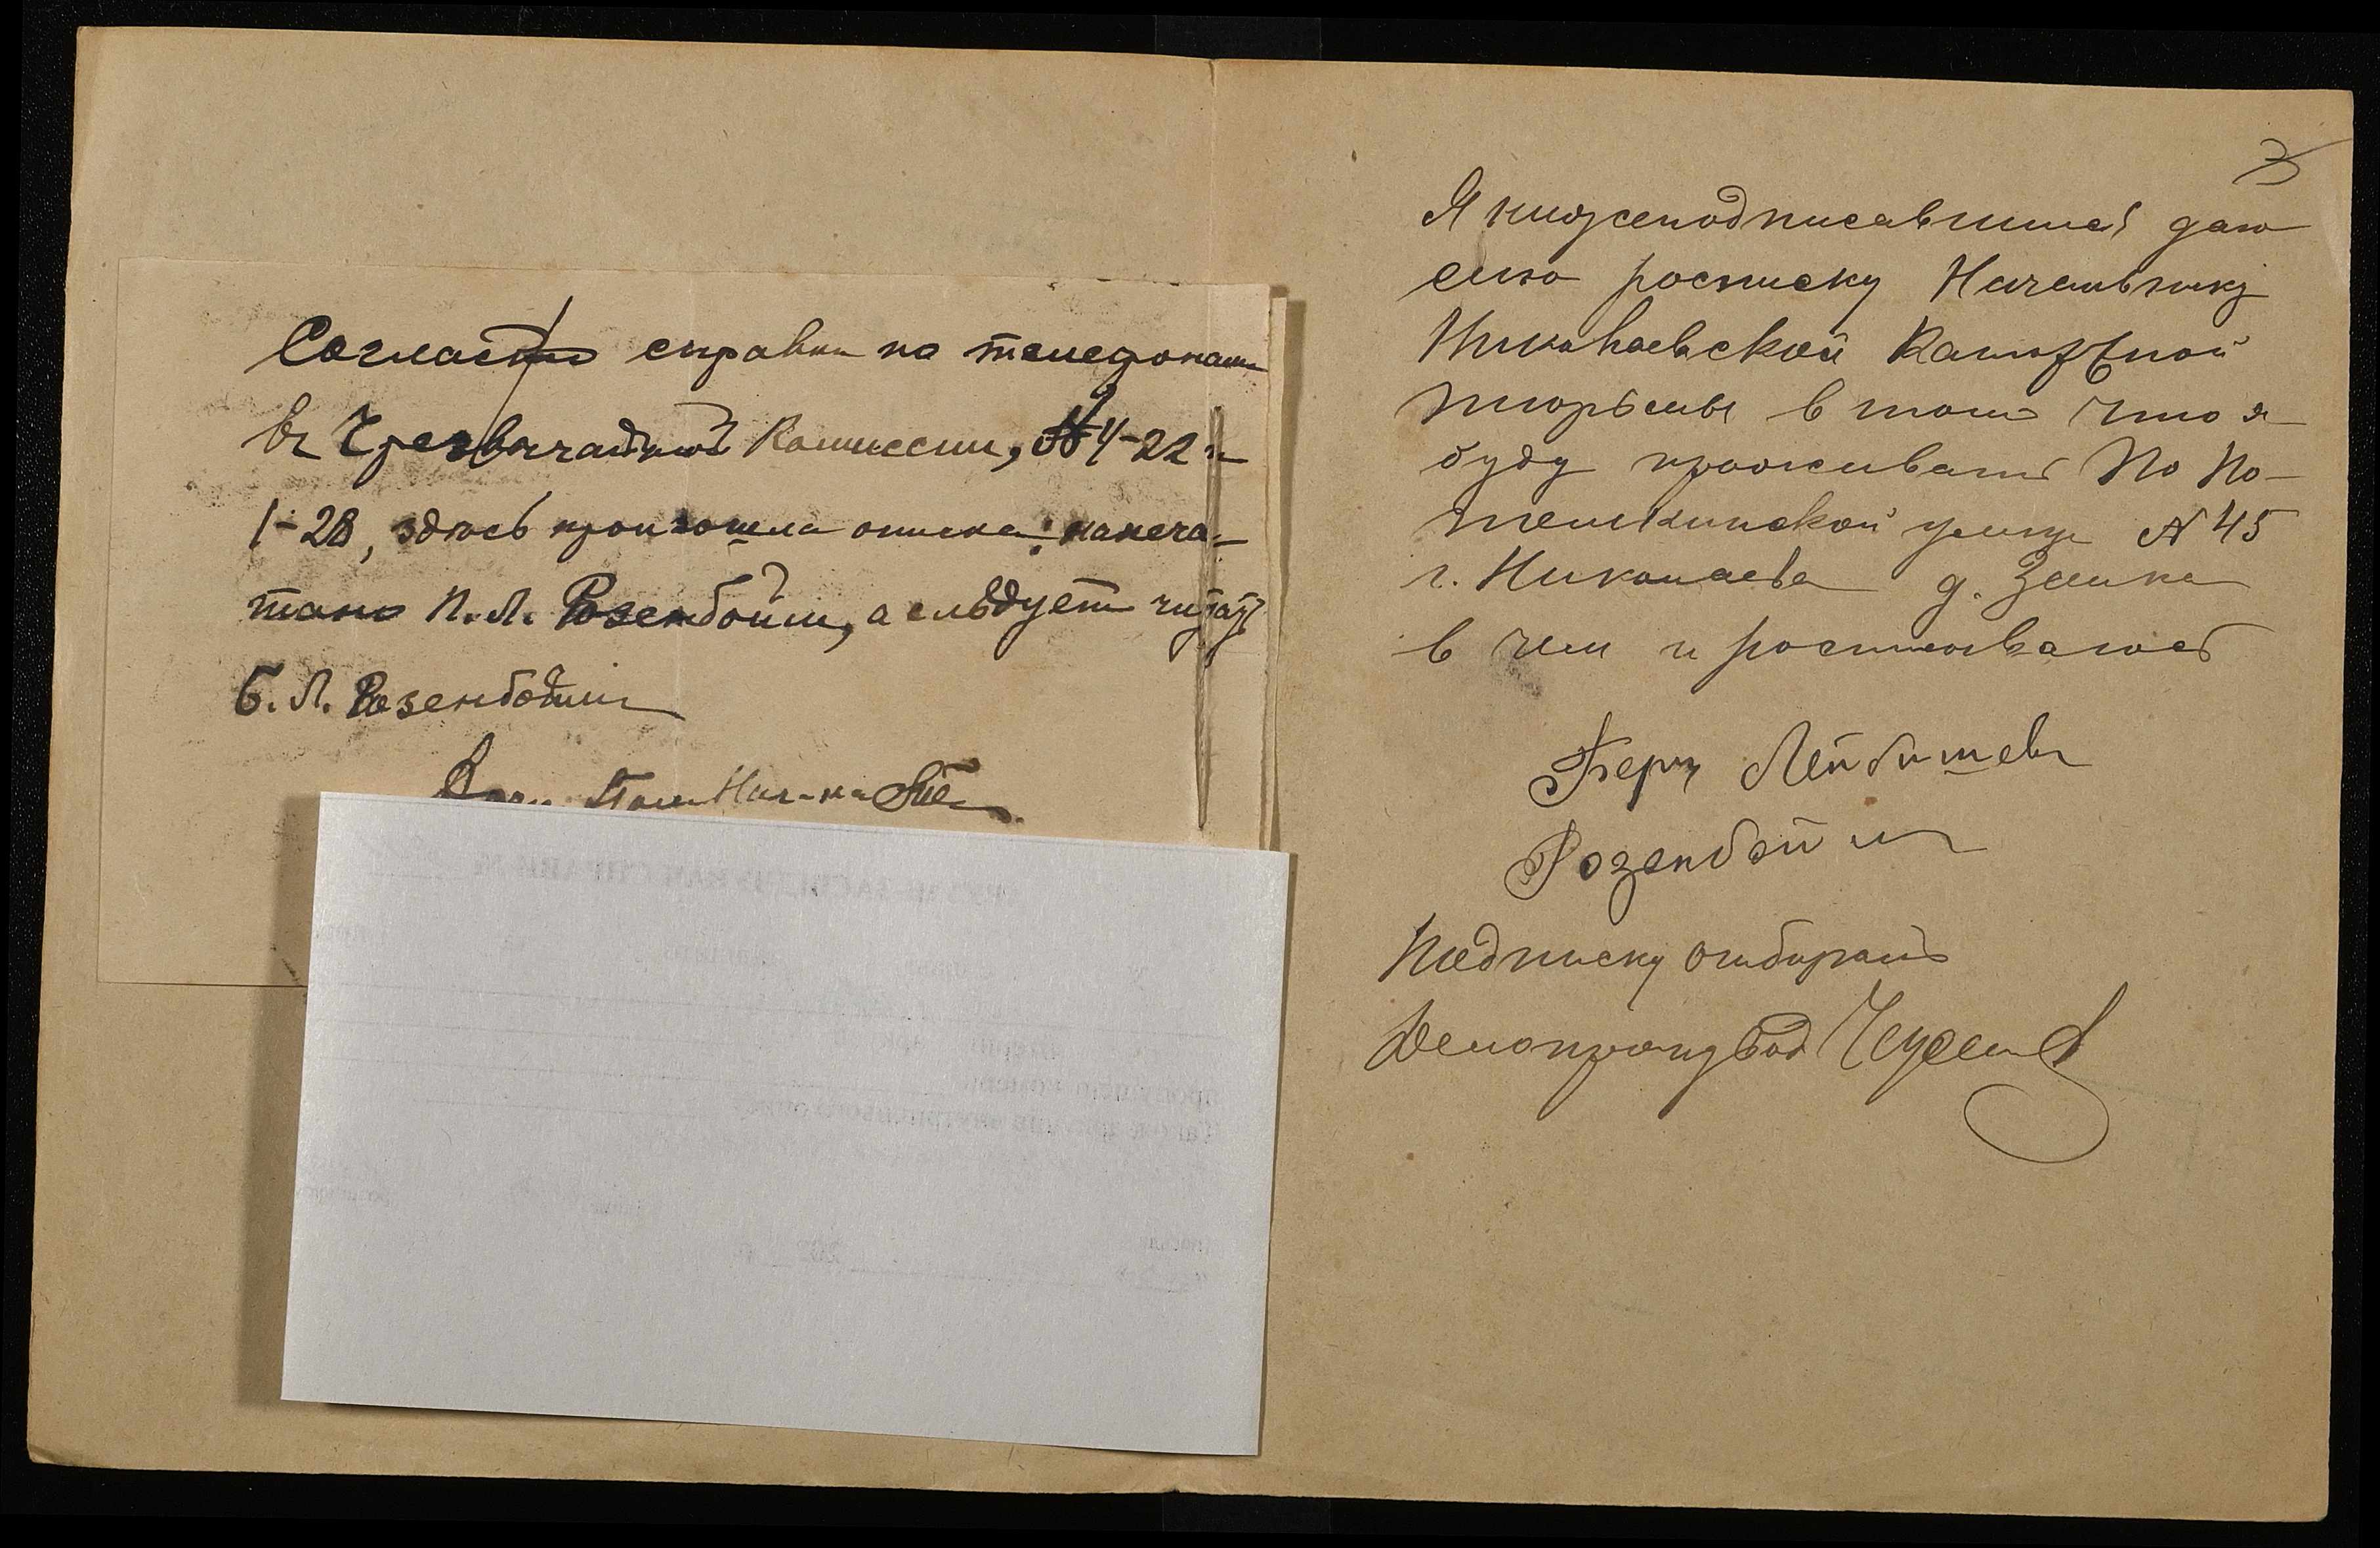 Согласно справки по телефонам
въ Чрезвычайной Комиссии, № 4-22 и
1-28, здѣсь произошла описка: напеча-
тано П. Л. Розенбойм, а слѣдует читать
Б. Л. Розенбоймъ
Пом. Нач-ка
3
Я нижеподписавшийся даю
сию росписку Начальнику
Николаевской Каторжной
тюрьмы в том что я
буду проживать По По-
темкинской улице № 45
г. Николаева д. Заика
в чем и росписываюсь
Берц Лейбишев
Розенбойм
Подписку отбирал
Делопроизвод